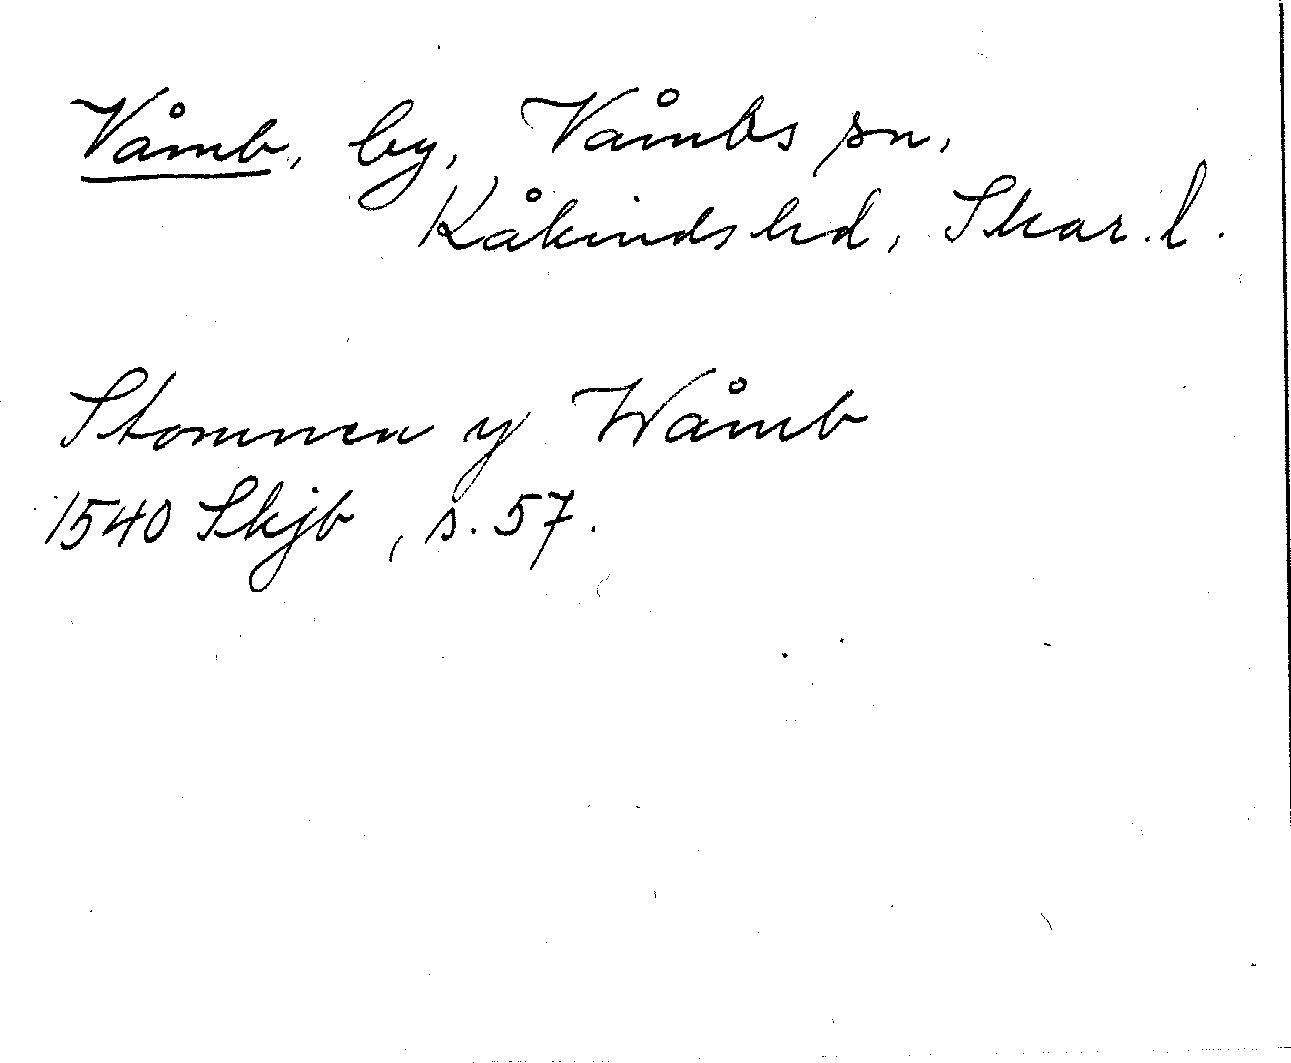 Våmb, by, Våmbs sn,
Kåkinds hd, Skar. l.
Stommen y Wåmb
1540 Skjb, s. 57.